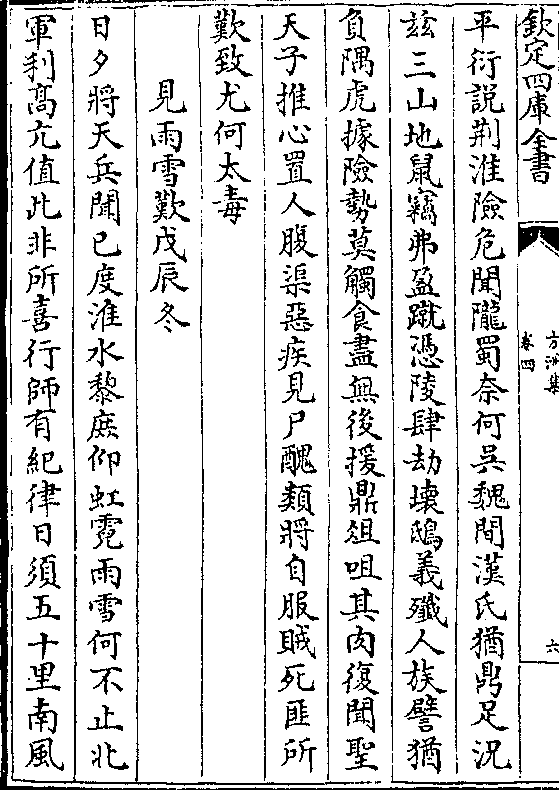 欽定四庫全書
卷四
六
平衍說荆淮險危聞隴蜀奈何吳魏間漢氏猶鼎足況
兹三山地鼠竊弗盈蹴憑陵肆劫壊鴟義殲人族譬猶
負隅虎據險勢莫觸食盡無後援鼎俎咀其肉復聞聖
天子推心置人腹渠惡疾見尸醜類將自服賊死匪所
歎致尤何太毒
見雨雪歎戊辰冬
日夕將天兵聞已度淮水黎庶仰虹霓雨雪何不止北
軍利髙亢值此非所喜行師有紀律日須五十里南風